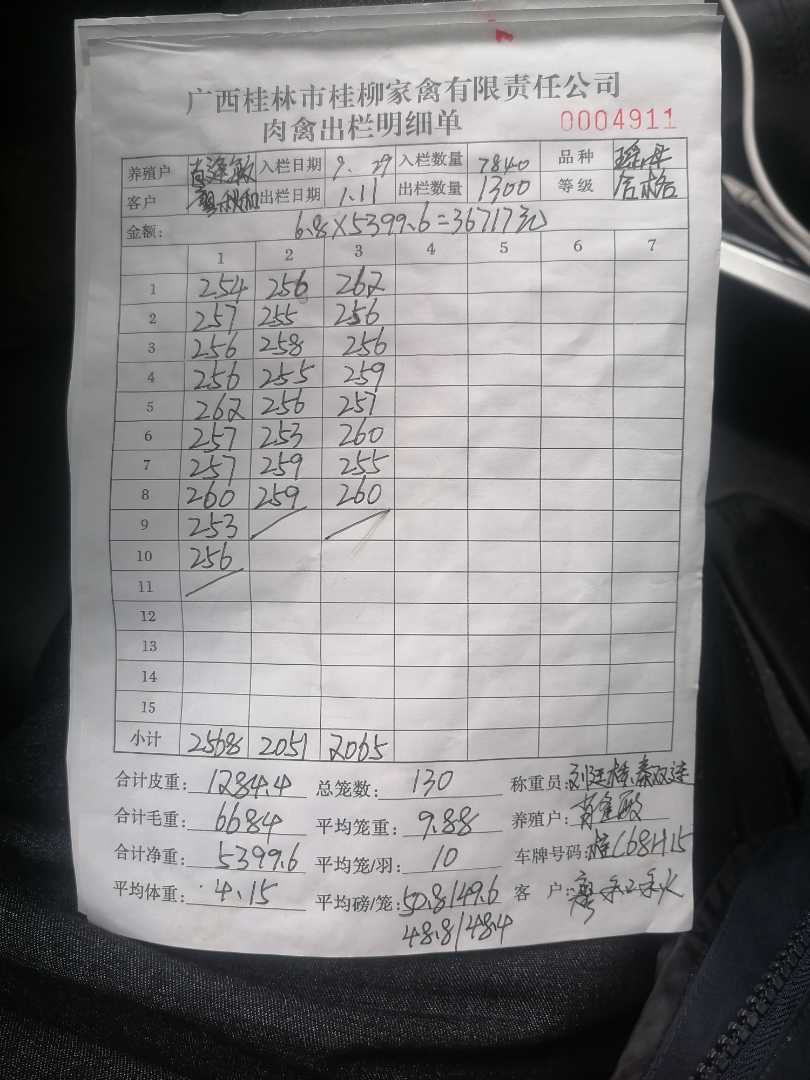 广西桂林市桂柳家禽有限责任公司
肉禽出栏明细单 0004911
养殖户 入栏日期 9.29 入栏数量 7840 品种
客户 出栏日期 1.11 出栏数量 1300 等级 合格
金额: 6.8×5399.6=36717元
1 2 3 4 5 6 7
1 254 256 262
2 257 255 256
3 256 258 256
4 256 255 259
5 262 256 257
6 257 253 260
7 257 259 255
8 260 259 260
9 253
10 256
11
12
13
14
15
小计 2568 2051 2065
合计皮重: 1284.4 总笼数: 130 称重员:
合计毛重: 6684 平均笼重: 9.88 养殖户:
合计净重: 5399.6 平均笼/羽: 10 车牌号码: 桂C68H15
平均体重: 4.15 平均磅/笼: 50.8/49.6 客户:
48.8/48.4